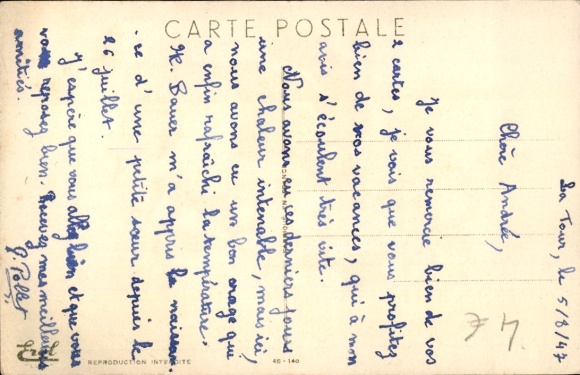 CARTE POSTALE
La Tour, le 5/8/47
Chère Andrée,
Je vous remercie bien de vos
2 cartes, je vois que vous profitez
bien de vos vacances, qui à mon
avis s'écoulent très vite.
Nous avons eu ces derniers jours
une chaleur intenable, mais ici,
nous avons eu un bon orage qui
a enfin rafraîchi la température.
M. Bauer m'a appris la naissan-
-ce d'une petite sœur depuis le
26 juillet.
J'espère que vous allez bien et que vous
vous reposez bien. Recevez mes meilleures
amitiés.
G. Pollet
REPRODUCTION INTERDITE